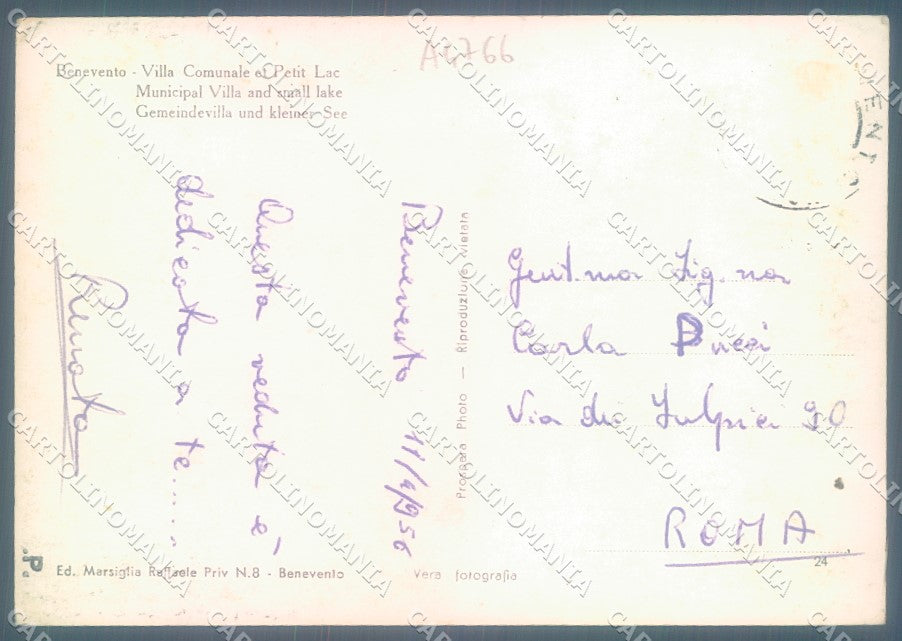 A4766
Benevento - Villa Comunale et Petit Lac
Municipal Villa and small lake
Gemeindevilla und kleiner See
Benevento 11/4/956
Questa veduta è
dedicata a te.....
Renato
Prospera Photo — Riproduzione vietata
Gent.ma Sig.na
Carla Pucci
Via di
90
ROMA
24
.P.
Ed. Marsiglia Raffaele Priv N.8 - Benevento
Vera fotografia
ENTO
CARTOLINOMANIA